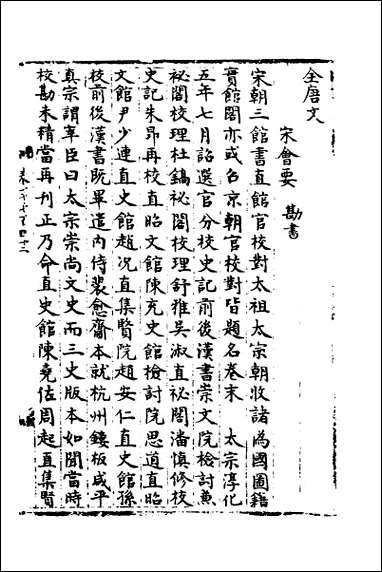 全唐文
宋會要 勘書
宋朝三館書直館官校對太祖太宗朝收諸僞國圖籍
實館閣亦或召京朝官校對皆題名卷末 太宗淳化
五年七月詔選官分校史記前後漢書崇文院檢討兼
祕閣校理杜鎬祕閣校理舒雅吳淑直祕閣潘慎修校
史記朱昂再校直昭文館陳充史館檢討阮思道直昭
文館尹少連直史館趙況直集賢院趙安仁直史館孫
校前後漢書既畢遣內侍裴愈齎本就杭州鏤板咸平
真宗謂宰臣曰太宗崇尚文史而三史版本如聞當時
校勘未精當再刊正乃命直史館陳堯佐周起直集賢